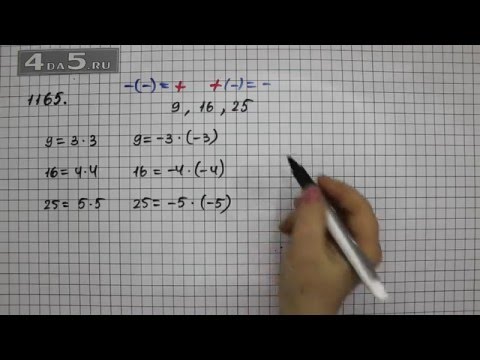 4DA5.RU
-(-) = + +(-) = -
1165.
9, 16, 25
9 = 3·3 9 = -3·(-3)
16 = 4·4 16 = -4·(-4)
25 = 5·5 25 = -5·(-5)